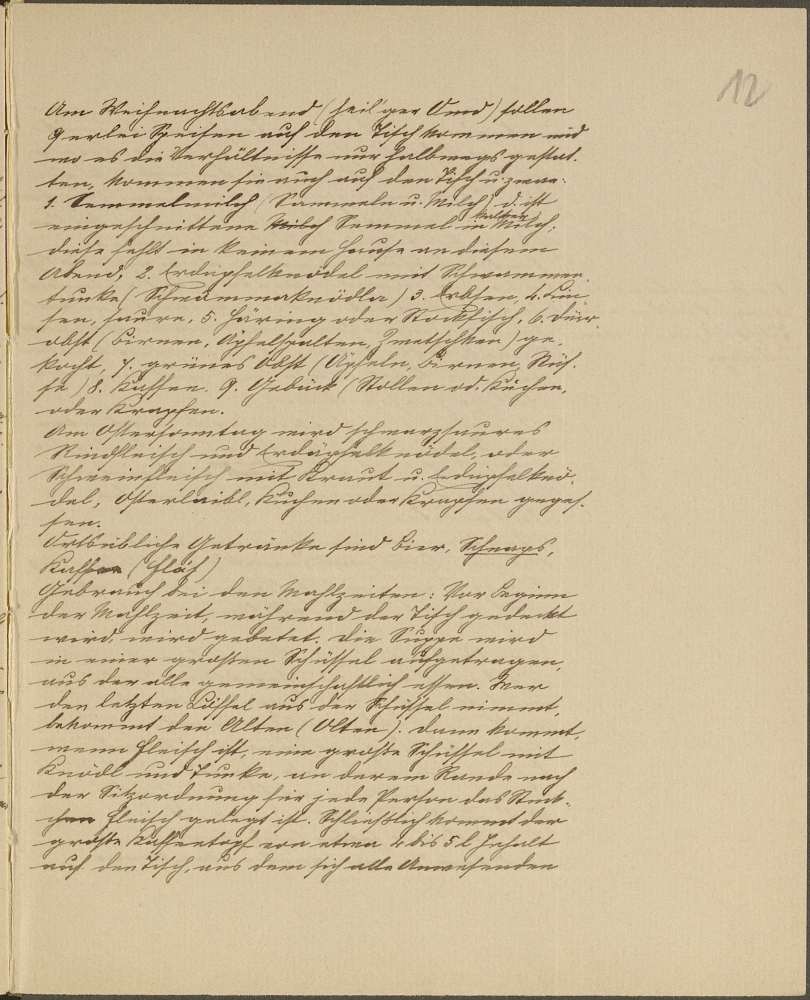 12
Am Weihnachtsabend (heil'ger Omd) sollen
9erlei Speisen auf den Tisch kommen und
wo es die Verhältnisse nur halbwegs gestat-
ten, kommen sie auch auf den Tisch u. zwar:
1. Semmelmilch (Sammeln u. Milch) d. ist
eingeschnittene Milch Semmel in kalter Milch;
diese fehlt in keinem Hause an diesem
Abend, 2. Erdäpfelknödel mit Schwammer-
tunke (Schwammaknödla) 3. Erbsen, 4. Lin-
sen, saure, 5. Häring oder Stockfisch, 6. Dürr-
obst (Birnen, Apfelspalten, Zwetschken) ge-
kocht, 7. grünes Obst (Äpfeln, Birnen, Nüs-
se) 8. Kaffee. 9. Gebäck (Stollen od. Kuchen,
oder Krapfen.
Am Ostersonntag wird schwarzsaures
Rindfleisch und Erdäpfelknödel, oder
Schweinfleisch mit Kraut u. Erdäpfelknö-
del, Osterlaibl, Kuchen oder Krapfen geges-
sen.
Ortsübliche Getränke sind Bier, Schnaps,
Kaffee
Gebrauch bei den Mahlzeiten: Vor Beginn
der Mahlzeit, während der Tisch gedeckt
wird, wird gebetet. Die Suppe wird
in einer großen Schüssel aufgetragen,
aus der alle gemeinschaftlich essen. Wer
den letzten Löffel aus der Schüssel nimmt,
bekommt den Alten (Olten). Dann kommt,
wenn Fleisch ist, eine große Schüssel mit
Knödl und Tunke, an derem Rande nach
der Sitzordnung für jede Person das Stück-
chen Fleisch gelegt ist. Schließlich kommt der
große Kaffeetopf von etwa 4 bis 5 l Inhalt
auf den Tisch, aus dem sich alle Anwesenden